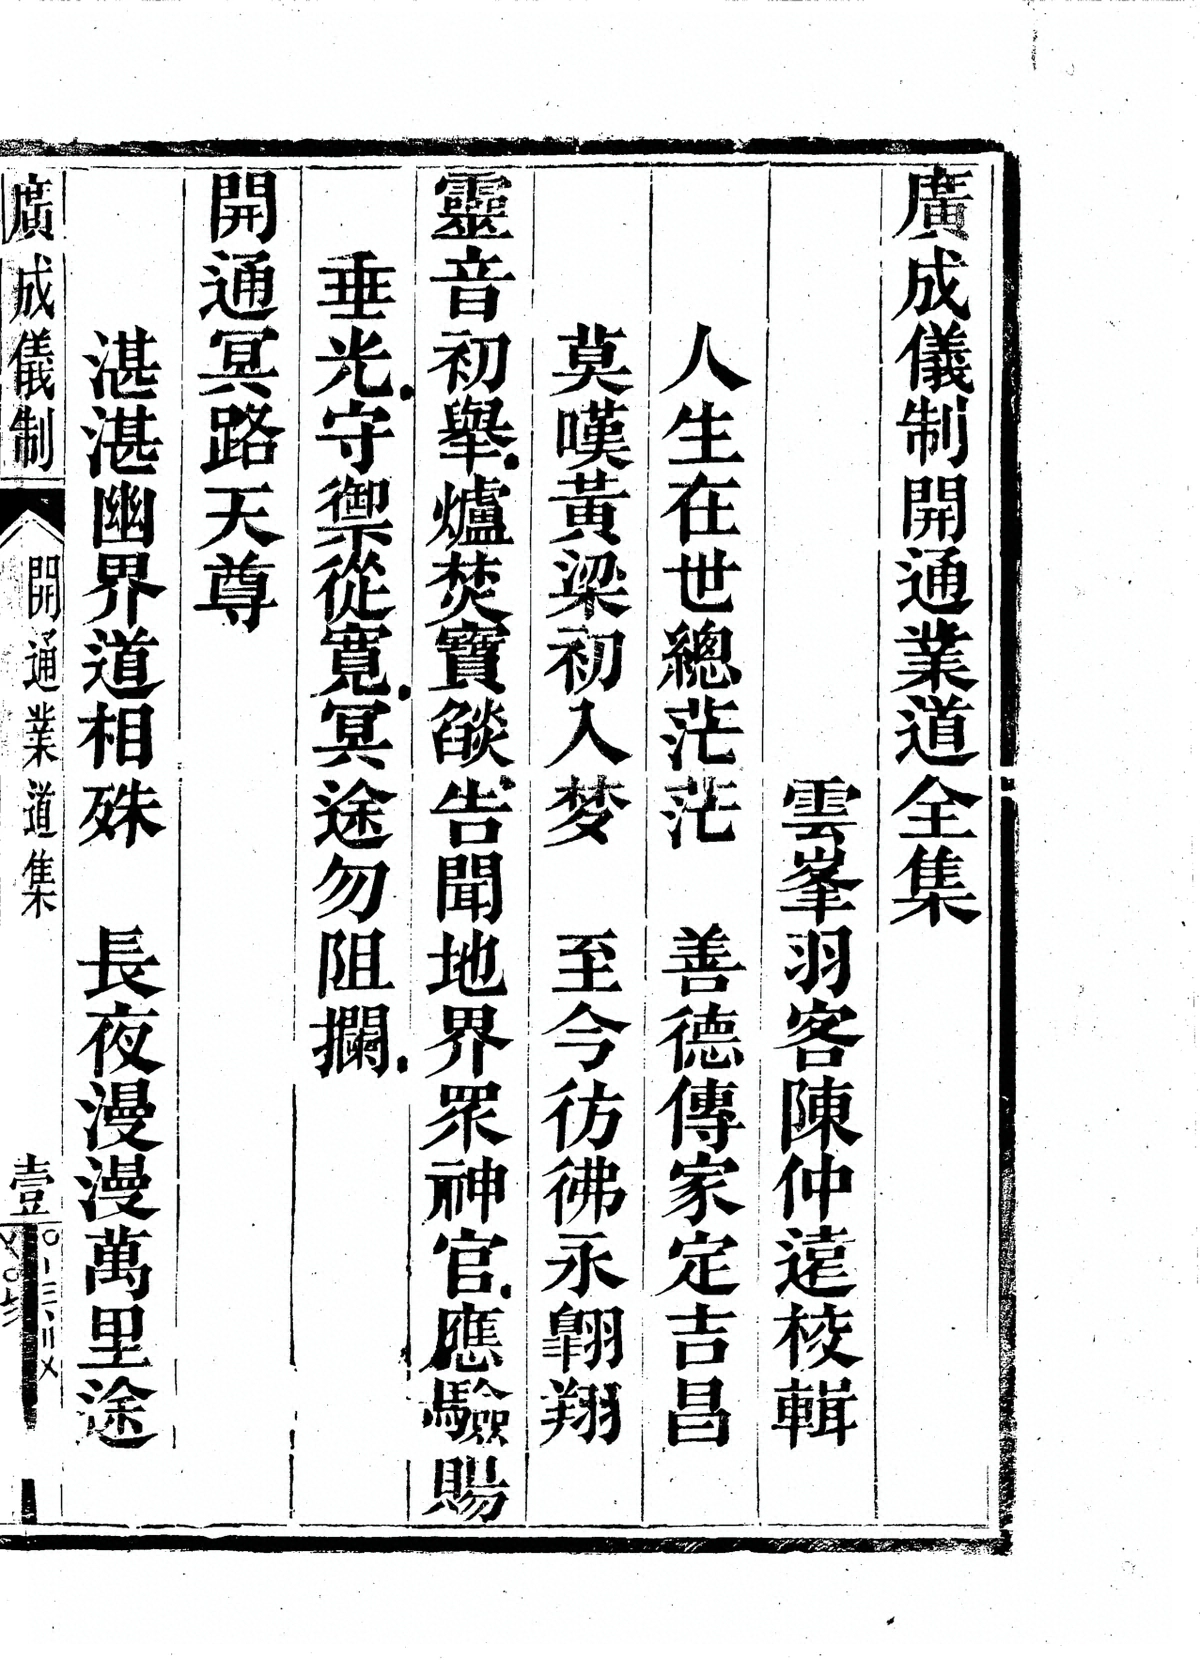 廣成儀制開通業道全集
雲峯羽客陳仲遠校輯
人生在世總茫茫　善德傳家定吉昌
莫嘆黃梁初入梦　至今彷彿永翱翔
靈音初舉.爐焚寶燄.告聞地界眾神官.應驗賜
垂光.守禦從寬.冥途勿阻攔.
開通冥路天尊
湛湛幽界道相殊　長夜漫漫萬里途
廣成儀制
開通業道集
壹